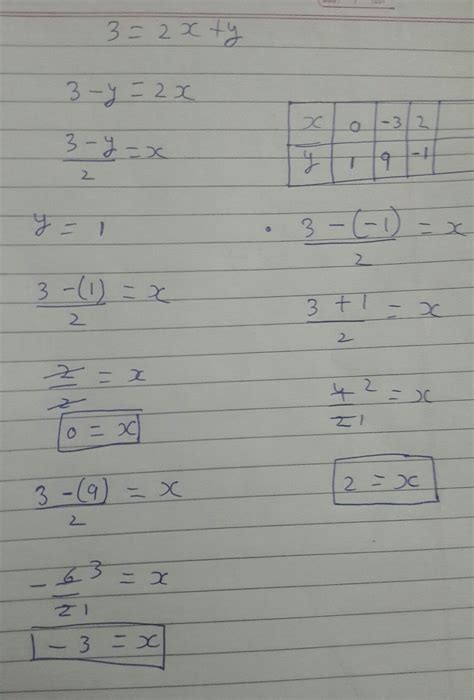 3 = 2x + y
3 - y = 2x
3 - y / 2 = x
x | 0 | -3 | 2
y | 1 | 9 | -1
y = 1
3 - (1) / 2 = x
2 / 2 = x
0 = x
3 - (9) / 2 = x
- 6 3 / 2 1 = x
- 3 = x
. 3 - (-1) / 2 = x
3 + 1 / 2 = x
4 2 / 2 1 = x
2 = x